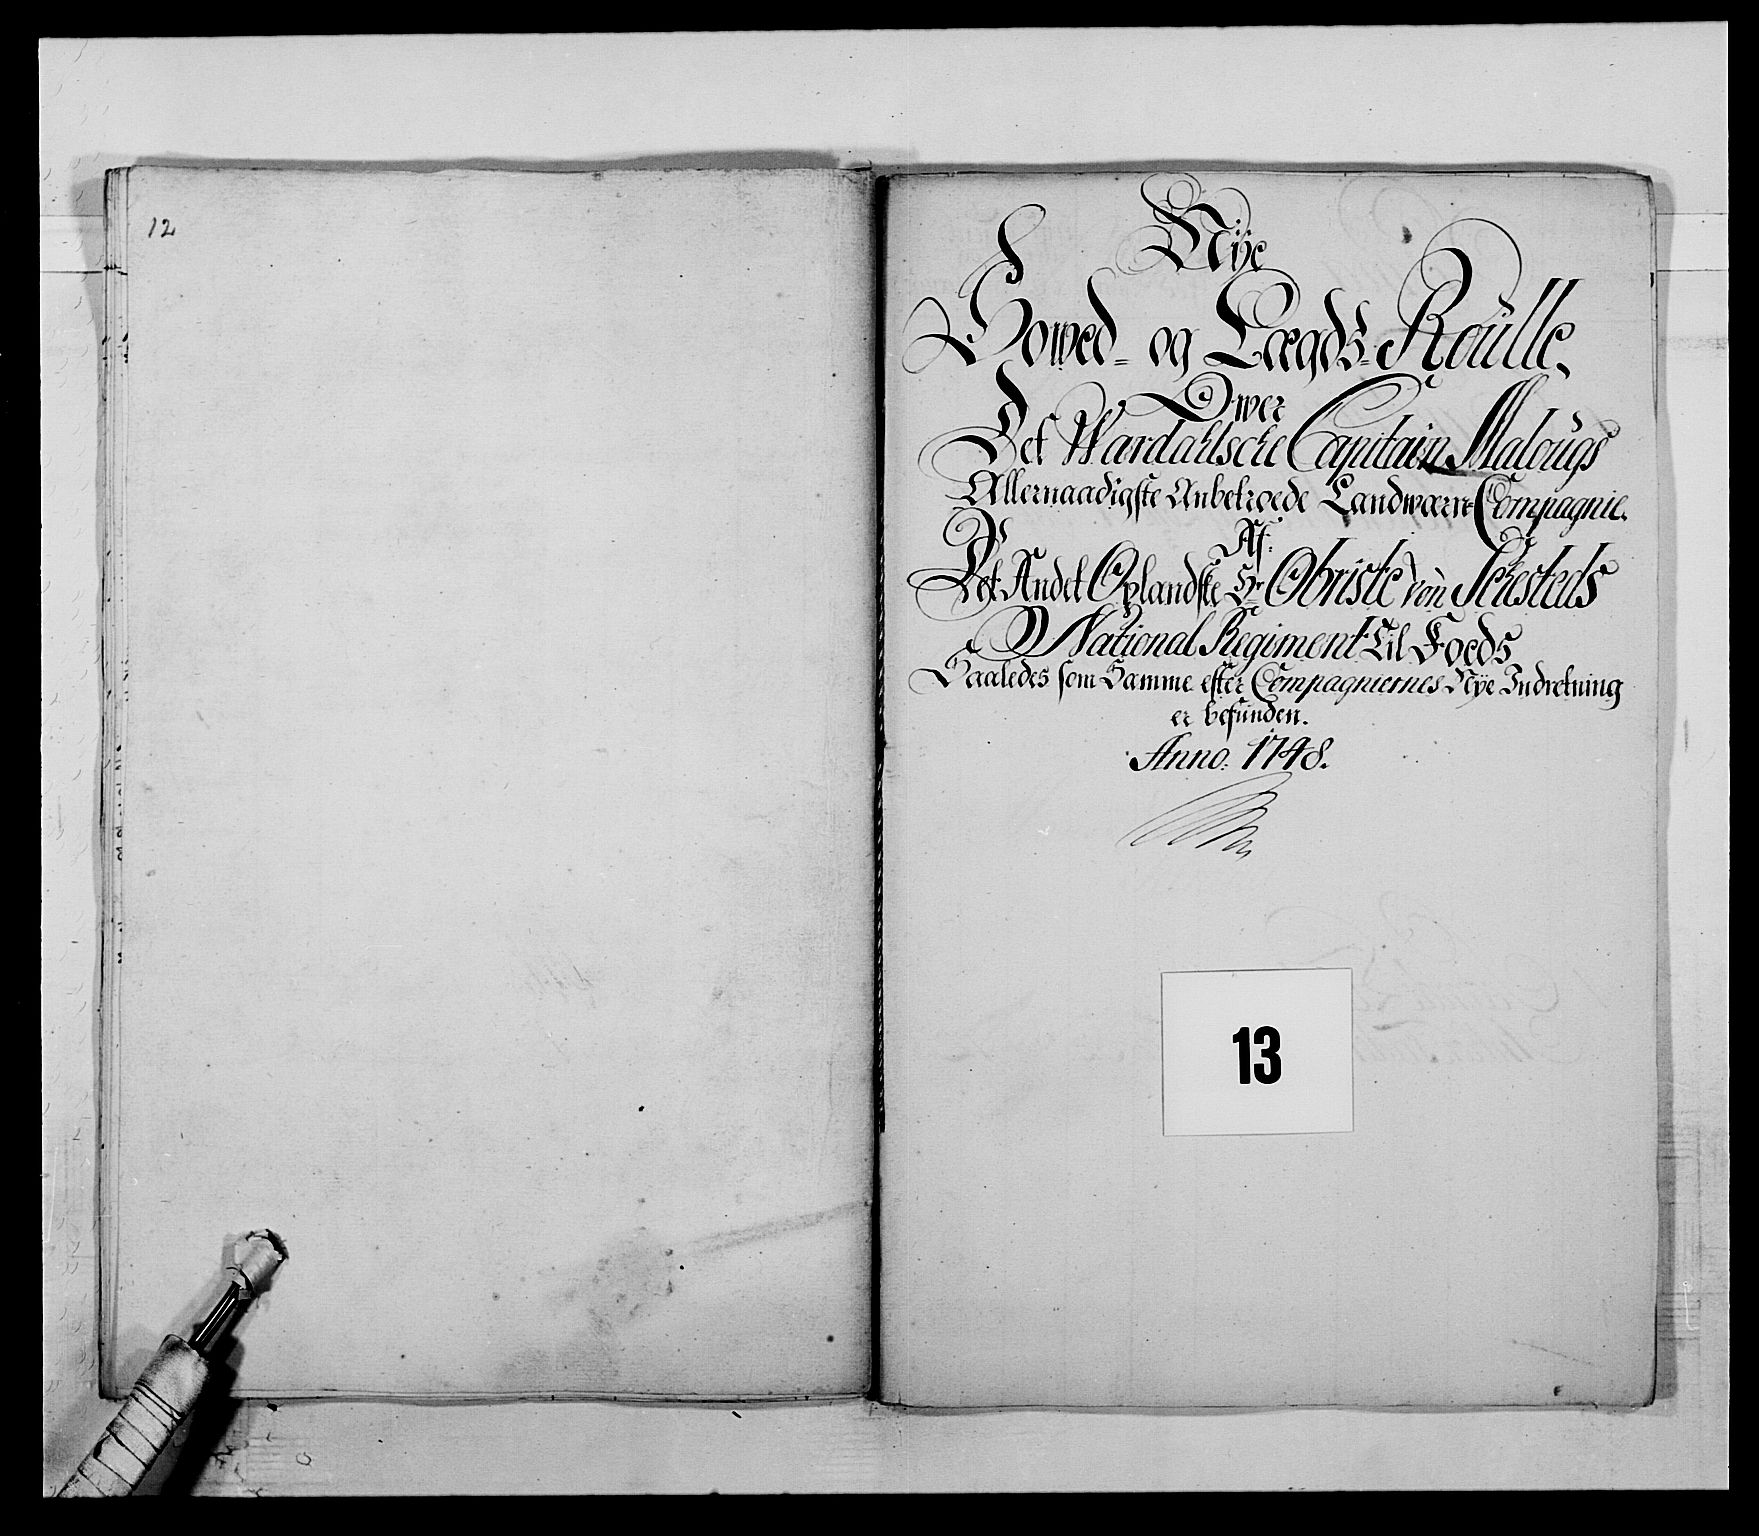 12
Nÿe
Howed- og Lægds-Roulle,
Ower
Det Wardahlsche Capitain Malougs
Allernaadigste Anbetroede Landwærn-Compagnie.
Af:
Det Andet Oplandske Hr Obriste von Sehesteds
National Regiment Til Foeds
Saaledes som Samme efter Compagniernes Nÿe Indretning
er befunden.
Anno: 1748.
13